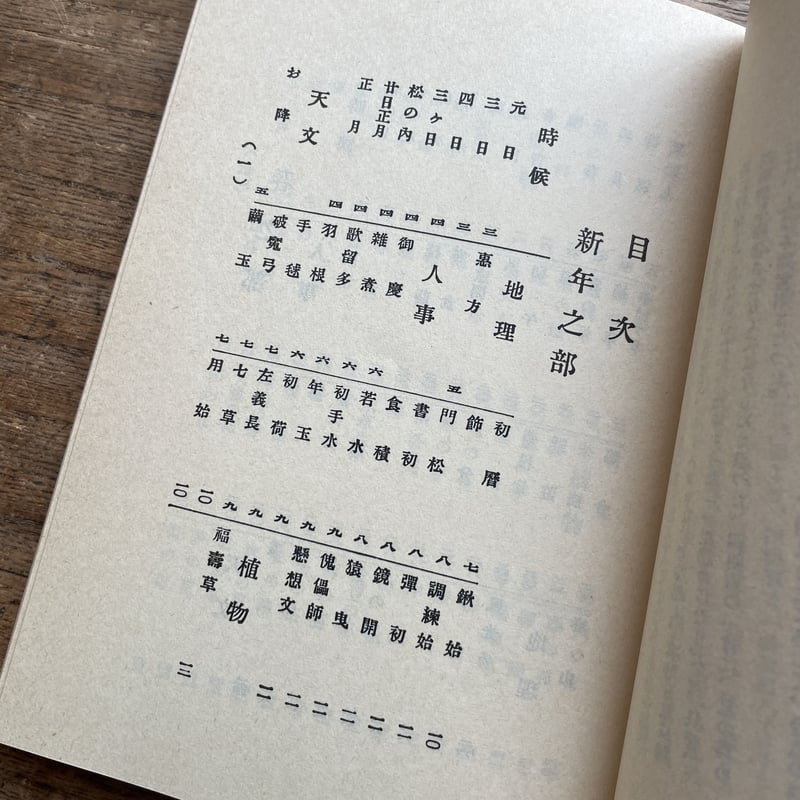 目次
新年之部
時候
元日 三
三日 三
四日 四
三ヶ日 四
松の内 四
廿日正月 四
正月 四
天文
お降 五
地理
惠方 五
人事
御慶 六
雜煮 六
歌留多 六
羽根 六
手毬 七
破魔弓 七
繭玉 七
初曆 七
飾 八
門松 八
書初 八
食積 八
若水 九
初手水 九
年玉 九
初荷 九
左義長 九
七草 一〇
用始 一〇
鍬始 一〇
調練始 一一
彈初 一一
鏡開 一一
猿曳 一一
傀儡師 一一
懸想文 一一
植物
福壽草 一二
(一)